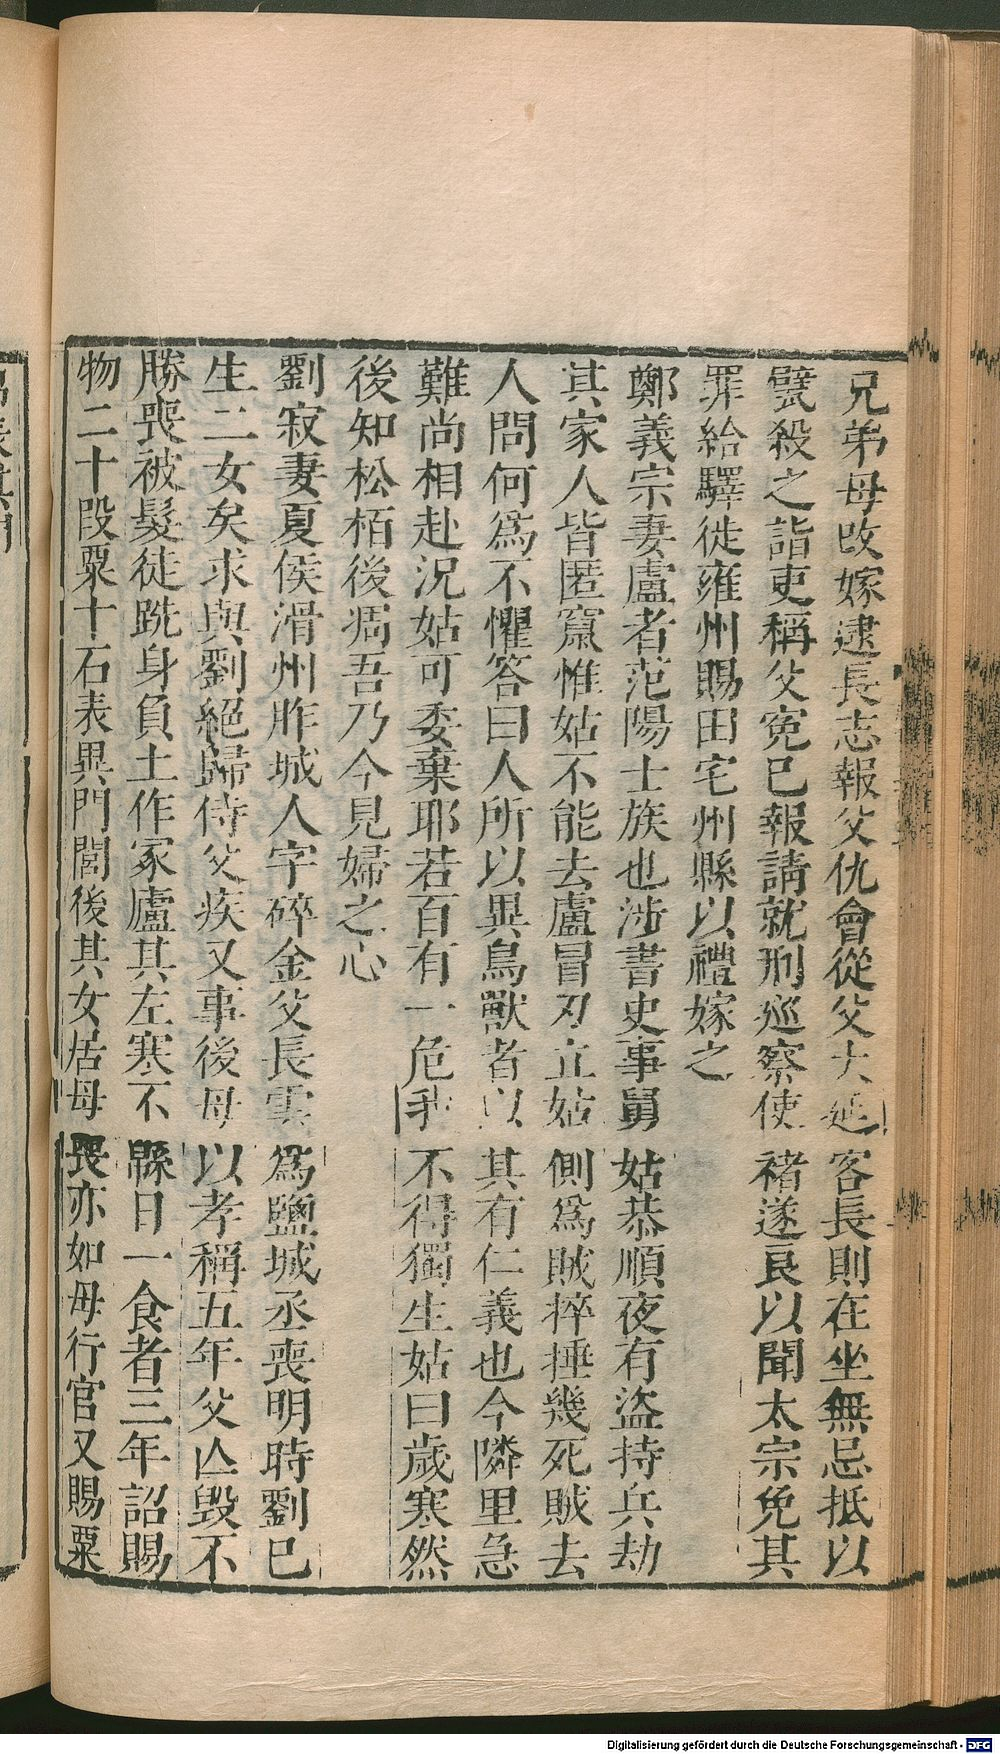 兄弟母改嫁逮長志報父仇會從父大延客長則在坐無忌抵以
甓殺之詣吏稱父寃已報請就刑巡察使褚遂良以聞太宗免其
罪給驛徙雍州賜田宅州縣以禮嫁之
鄭義宗妻盧者范陽士族也涉書史事舅姑恭順夜有盜持兵劫
其家人皆匿竄惟姑不能去盧冒刃立姑側爲賊捽捶幾死賊去
人問何爲不懼答曰人所以異鳥獸者以其有仁義也今隣里急
難尚相赴況姑可委棄耶若百有一危我不得獨生姑曰歲寒然
後知松栢後凋吾乃今見婦之心
劉寂妻夏侯滑州胙城人字碎金父長雲爲鹽城丞喪明時劉已
生二女矣求與劉絕歸侍父疾又事後母以孝稱五年父亾毀不
勝喪被髮徒跣身負土作冢廬其左寒不緜日一食者三年詔賜
物二十段粟十石表異門閭後其女居母喪亦如母行官又賜粟
Digitalisierung gefördert durch die Deutsche Forschungsgemeinschaft - DFG